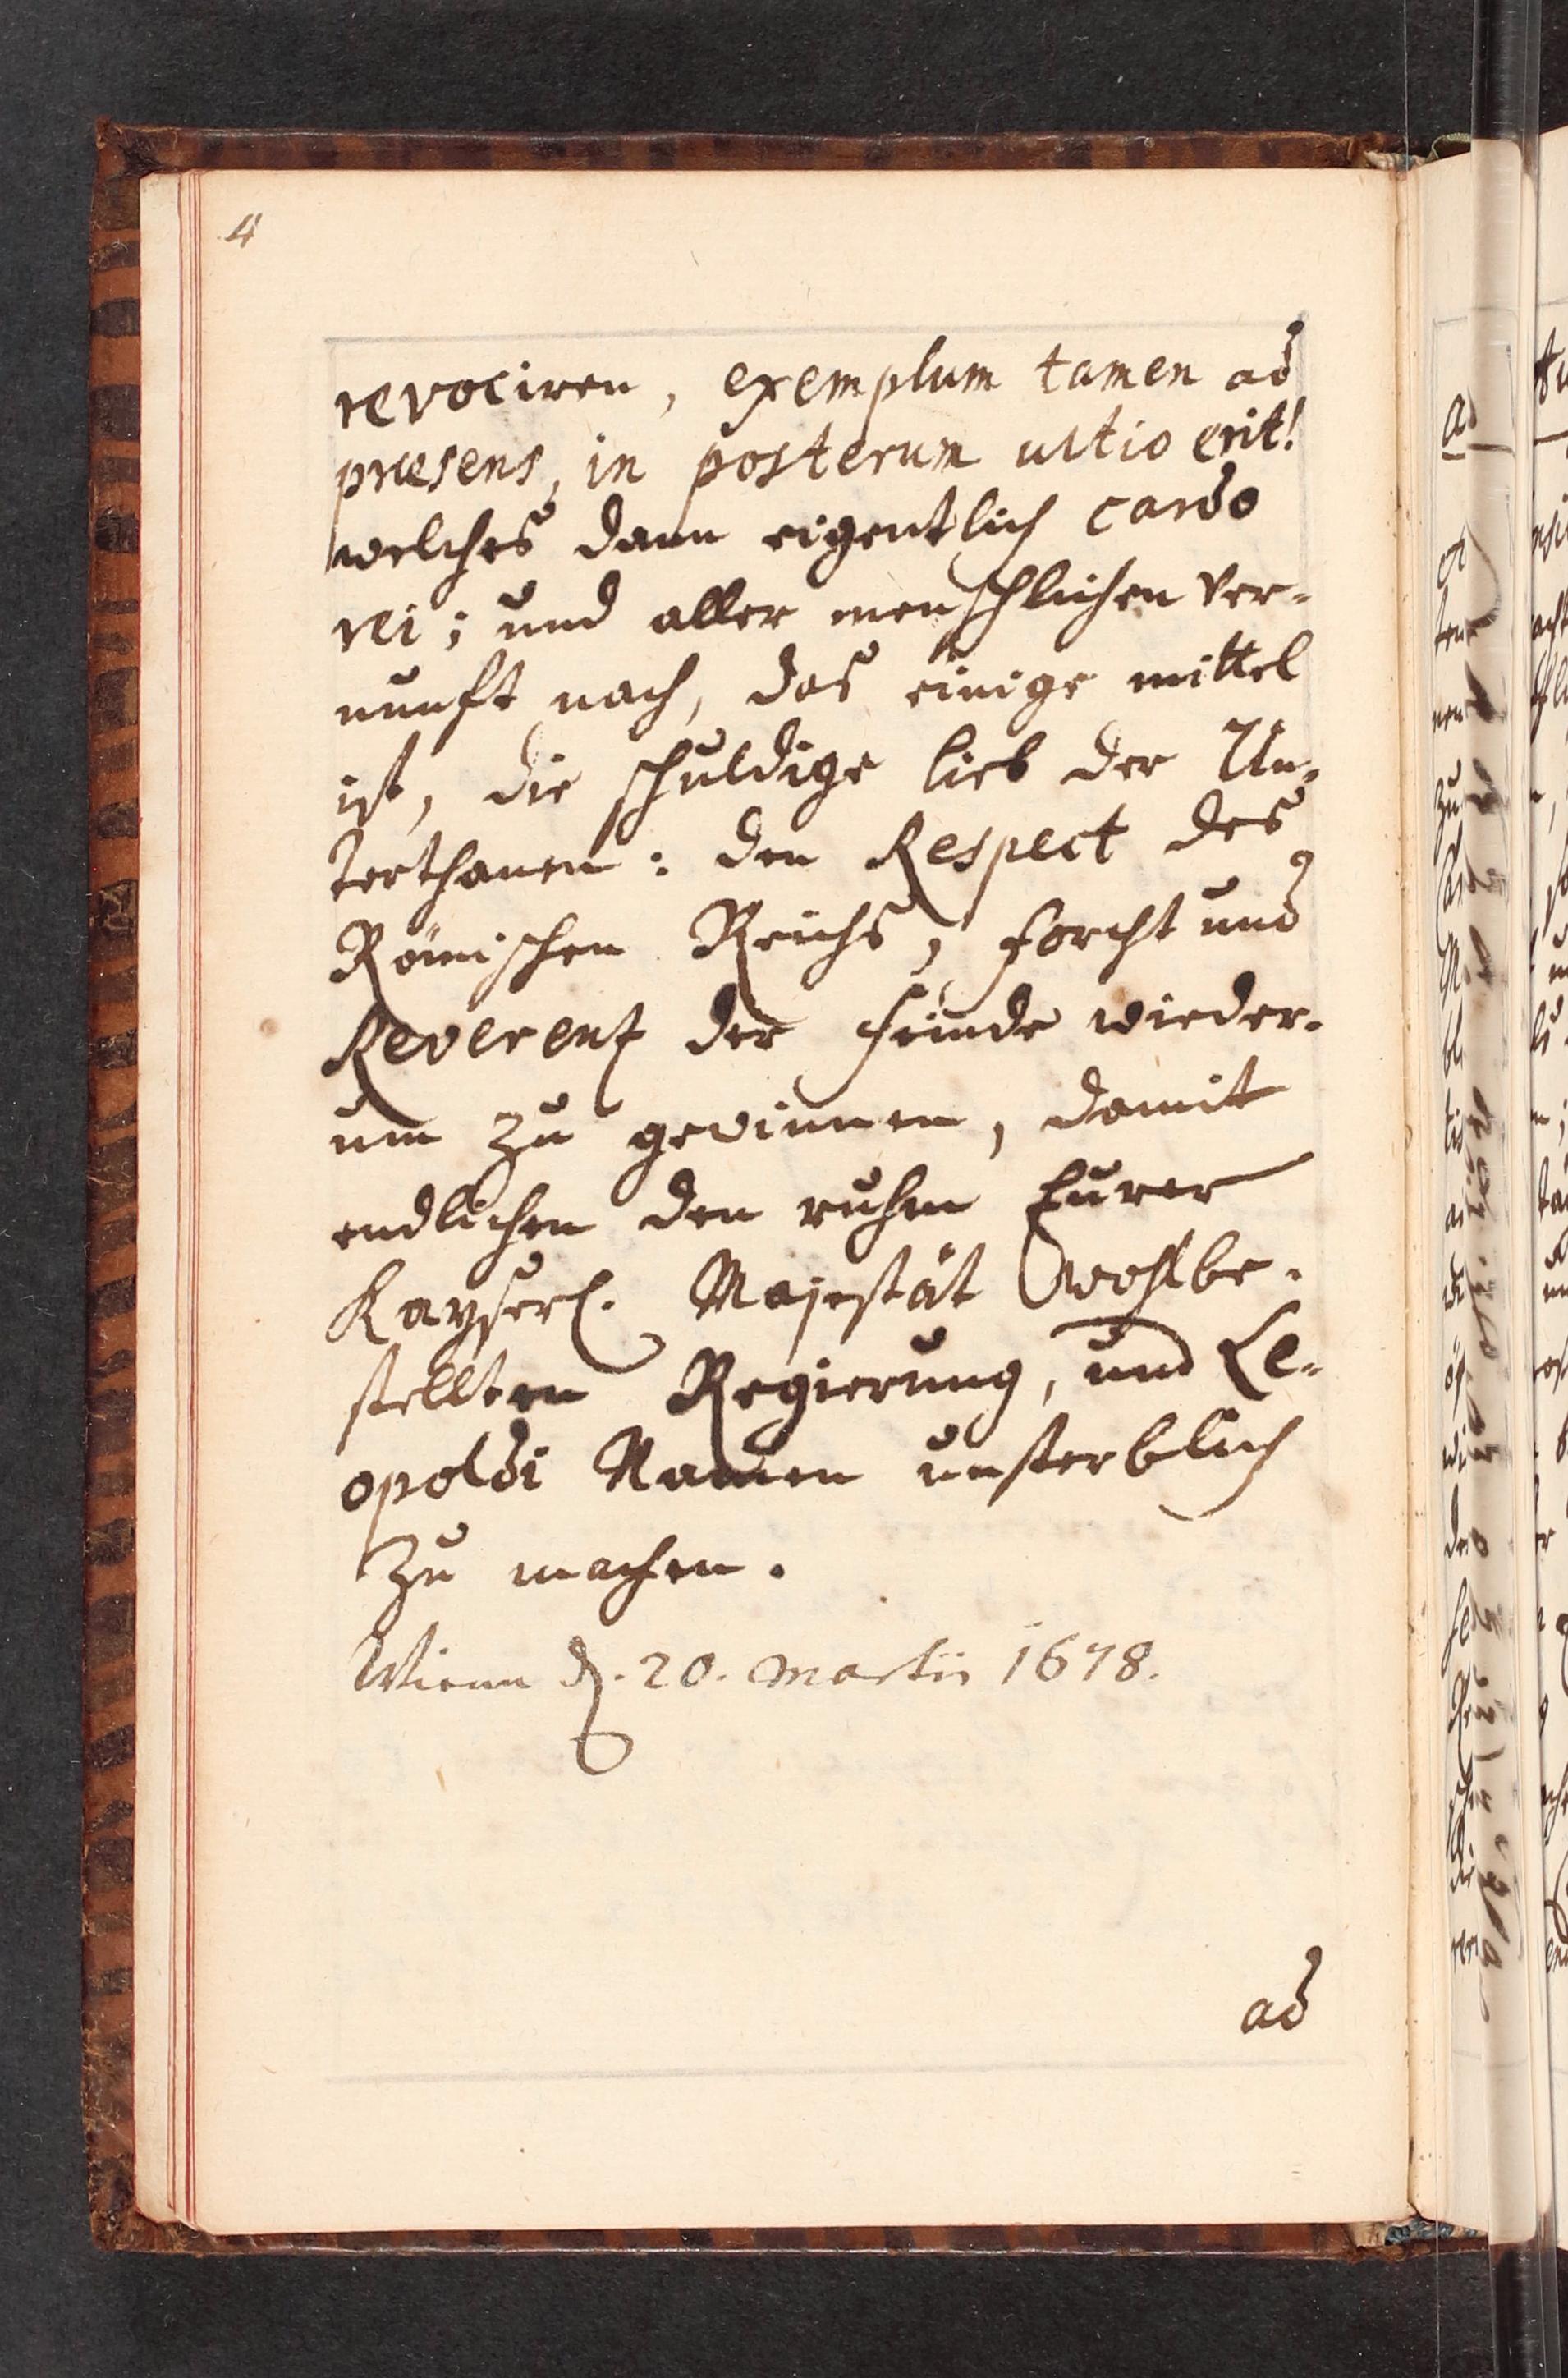 4
revociren, exemplum tamen ad
præsens, in posterum ultio erit!
welches dann eigentlich cardo
rei; und aller menschlichen Ver-
nunft nach, das einige mittel
ist, die schuldige lieb der Un-
terthanen: den Respect des
Römischen Reichs, forcht und
Reverentz der feinde wieder-
um zu gewinnen, damit
endlichen den ruhm Eurer
Kayserl. Majestät Wohlbe-
stellten Regierung, und Le-
opoldi Namen unsterblich
zu machen.
Wienn d. 20. Martii 1678.
ad